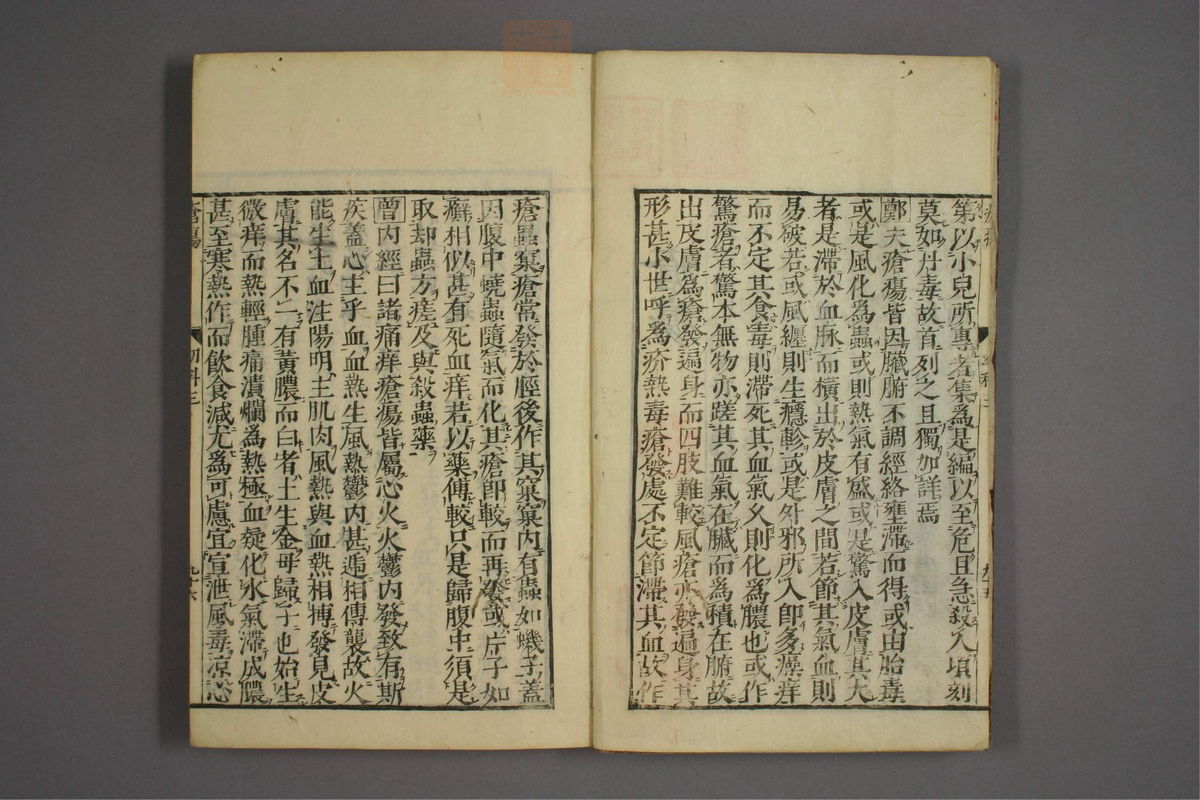 第以小兒所專者集爲是編以至危且急殺人頃刻
莫如丹毒故首列之且獨加詳焉
鄭夫瘡瘍皆因臟腑不調經絡壅滯而得或由胎毒
或是風化爲蟲或則熱氣有盛或是驚入皮膚其大
者是滯於血脉而橫出於皮膚之間若節其氣血則
易破若或風纏則生癮軫或是外邪所入即多瘙痒
而不定其食毒則滯死其血氣久則化爲膿也或作
驚瘡者驚本無物亦蹉其血氣在臟而爲積在腑故
出皮膚爲瘡發遍身而四肢難較風瘡亦發遍身其
形甚小世呼爲疥熱毒瘡發處不定節滯其血故作
瘡蟲窠瘡常發於脛後作其窠窠内有蟲如蟣子蓋
因腹中蟯蟲隨氣而化其瘡即較而再發或片子如
癬相似甚有死血痒若以藥傅較只是歸腹中須是
取却蟲方瘥及與殺蟲藥
曾内經曰諸痛痒瘡瘍皆屬心火火鬱内發致有斯
疾蓋心主乎血血熱生風熱鬱内甚遞相傳襲故火
能生土血注陽明主肌肉風熱與血熱相搏發見皮
膚其名不一有黃膿而白者土生金母歸子也始生
微痒而熱輕腫痛潰爛爲熱極血凝化水氣滯成膿
甚至寒熱作而飲食減尤爲可慮宜宣泄風毒凉心
瘡瘍
幼科三
九十六